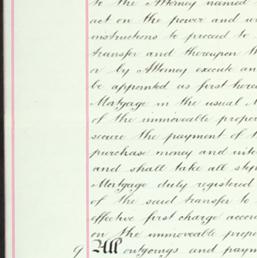 to the Attorney named
act on the power and
instructions to proceed to
transfer and thereupon
or by Attorney execute an
be appointed as first
Mortgage in the usual
of the immoveable proper
secure the payment of
purchase money and int
and shall take all step
Mortgage duly registered
of the said transfer to
effective first charge accor
on the immoveable prope
9 All outgoings and paym